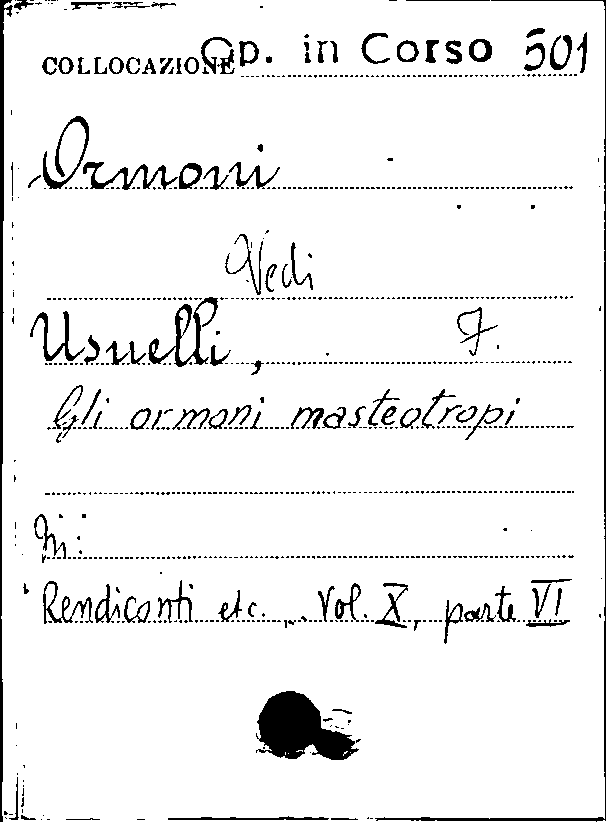 COLLOCAZIONE Op. in Corso 501
Ormoni
Vedi
Usuelli, F.
Gli ormoni masteotropi
In:
Rendiconti etc. ... Vol. X, parte VI